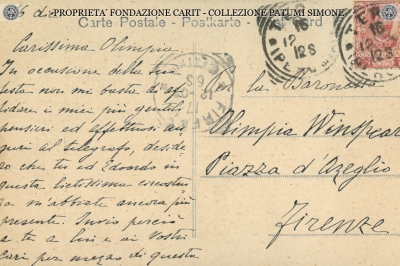 -PROPRIETA' FONDAZIONE CARIT - COLLEZIONE PATUMI SIMONE
Carte Postale - Postkarte - Post Card
Carissima Olimpia
In occasione della tua
festa non mi basta di af-
fidare i miei più gentili
pensieri ed affettuosi au-
guri al telegrafo, deside
ro che tu ed Edoardo in
questa lietissima circostan
za m'abbiate ancora più
presente. Invio perciò
a te a lui e ai vostri
cari per mezzo di questa
la Baronessa
Olimpia Winspeare
Piazza d'Azeglio
Firenze